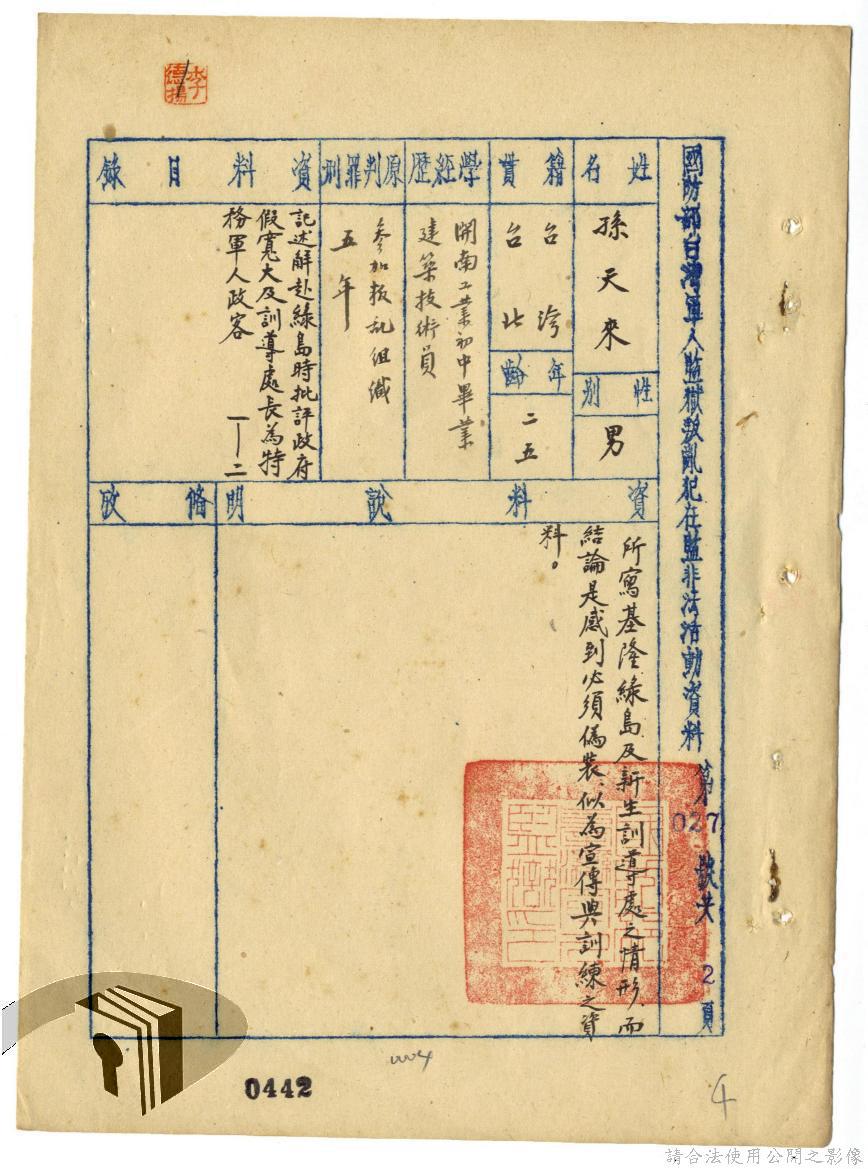 李德揚
國防部台灣軍人監獄叛亂犯在監非法活動資料 第027號共2頁
姓名
孫天來
性別
男
籍貫
台灣
台北
年齡
二五
學經歷
開南工業初中畢業
建築技術員
原判罪刑
參加叛乱組織
五年
資料目錄
記述解赴綠島時批評政府
假寬大及訓導處長為特
務軍人政客 一—二
資料說明
所寫基隆綠島及新生訓導處之情形而
結論是感到必須偽裝、似為宣傳與訓練之資
料。
備攷
0442
4
請合法使用公開之影像